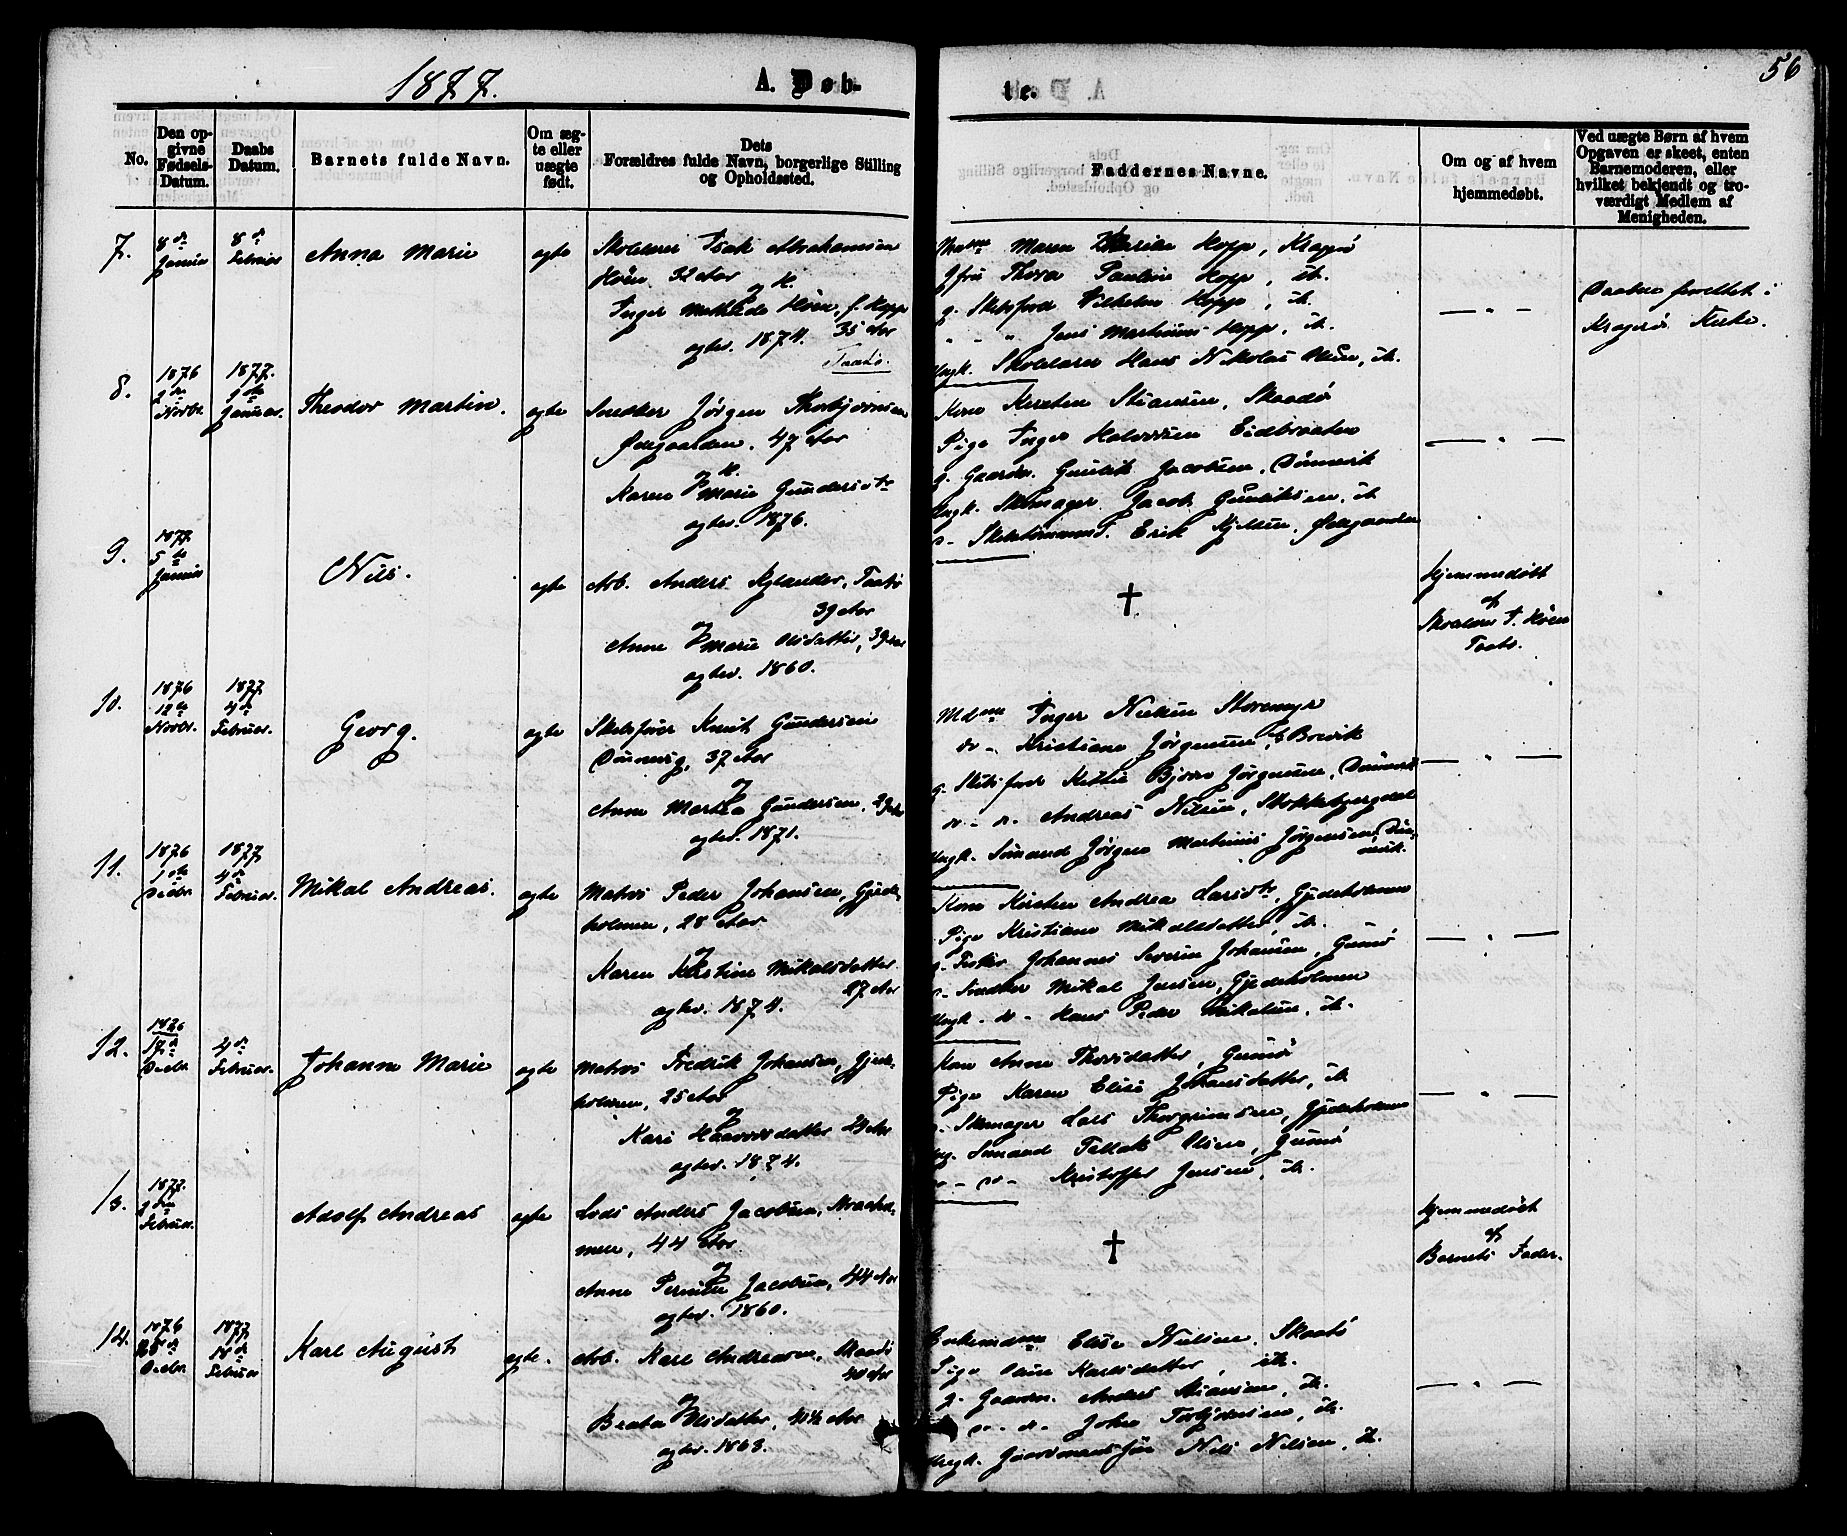 1877.
A. Døb-
te.
56
No.
Den op-
givne
Fødsels-
Datum.
Daabs
Datum.
Barnets fulde Navn.
Om æg-
te eller
uægte
født.
Dets
Forældres fulde Navn, borgerlige Stilling
og Opholdssted.
Faddernes Navne.
Om og af hvem
hjemmedøbt.
Ved uægte Børn af hvem
Opgaven er skeet, enten
Barnemoderen, eller
hvilket bekjendt og tro-
værdigt Medlem af
Menigheden.
7.
8de
Januar
8de
Februar
Anna Marie
ægte
Skolelærer Isak Abrahamsen
Höen, 32 Aar
og K.
Inger Mathilde Höen, f. Hopp
35 Aar
ægtev. 1874.
Taatö.
Madme Maren Hopp, Kragerö
Jfru Thora Pauline Hopp, it.
g. Skibsförer Vilhelm Hopp, it.
" " Jens Martinus Hopp, it.
Ungk. Skolelærer Hans Nikolai Olsen, it.
— " —
Daaben forrettet i
Kragerö Kirke.
8.
1876
2de
Novbr.
1877.
Januar.
Theodor Martin.
ægte
Snedker Jørgen Thorbjörnsen
Ødegaarden, 47 Aar
og K.
Karen Marie Gundersdtr
ægtev. 1876.
Kone Kirsten Stiansen, Skaadö
Pige Inger Halvorsen Eidbraaten
g. Gaardm. Gunlik Jacobsen, Dönnevik
Ungk. Skomager Jacob Gunliksen, it
Erik Kjelsen, Ødegaarden
— " —
9.
1877
5te
Januar
Nils.
ægte
Arb. Anders Kylander, Taatö
39 Aar
og
Anne Marie Olsdatter, 39 Aar
ægtev. 1860.
†
Hjemmedöbt
af
Skolelærer I. Höen
Taatö.
10.
1876
12te
Novbr.
1877
4de
Februar.
Georg.
ægte
Skibsförer Knut Gundersen
37 Aar
og
Anne Martea Gundersen, 29 Aar
ægtev. 1871.
Mdme Inger Nielsen Storemyr
do - Kristiane Jørgensen, Borvik
g. Skibsförer Kittil Bjorn Jørgensen,
do - do. Andreas Nilsen, Stokkebjergdal
Ungk. Sömand Jørgen Martinus Jörgensen,
— " —
11.
1876
1ste
Decbr.
1877
4de
Februar.
Mikal Andreas.
ægte
Matros Peder Johansen, Gjede-
holmen, 28 Aar
og
Karen Kirstine Mikalsdatter
27 Aar
ægtev. 1874.
Kone Kirsten Andrea Larsdtr, Gjedeholmen
Pige Kristiane Mikalsdatter, it.
g. Fisker Johannes Severin Johansen, Gumö
do - Snedker Mikal Jensen, Gjedeholmen
Ungk - do - Hans Peder Mikalsen, it.
— " —
12.
1876
17de
Decbr.
4de
Februar.
Johanne Marie
ægte
Matros Fredrik Johansen, Gjede-
holmen, 25 Aar
og
Kari Haavorsdatter 29 Aar
ægtev. 1874.
Kone Anne Thorsdatter, Gumö
Pige Karen Elise Johansdatter, it
Skomager Lars Thorgrimsen, Gjedeholmen
Ung. Sömand Tallak Olsen, Gumö
do - do - Kristoffer Jensen, it.
— " —
13.
1877.
2den
Februar.
Adolf Andreas
ægte
Lods Anders Jacobsen, Straahol-
men, 44 Aar
og
Anne Pernille Jacobsen, 44 Aar
ægtev. 1860.
†
Hjemmedöbt
af
Barnets Fader.
14.
1876
Decbr.
1877
18de
Februar
Karl August
ægte.
Arb. Karl Andreasen, Skaadö
40 Aar
og
Beata Olsdatter, 41½ Aar
ægtev. 1863.
Enkemadme Elise Nielsen, Skaatö
Pige Karlsdatter, it.
g. Gaardm. Anders Stiansen, it.
do - do. John Torbjörnsen, it.
Ungk. Gaardmandssön Nils Nilsen, it.
— " —